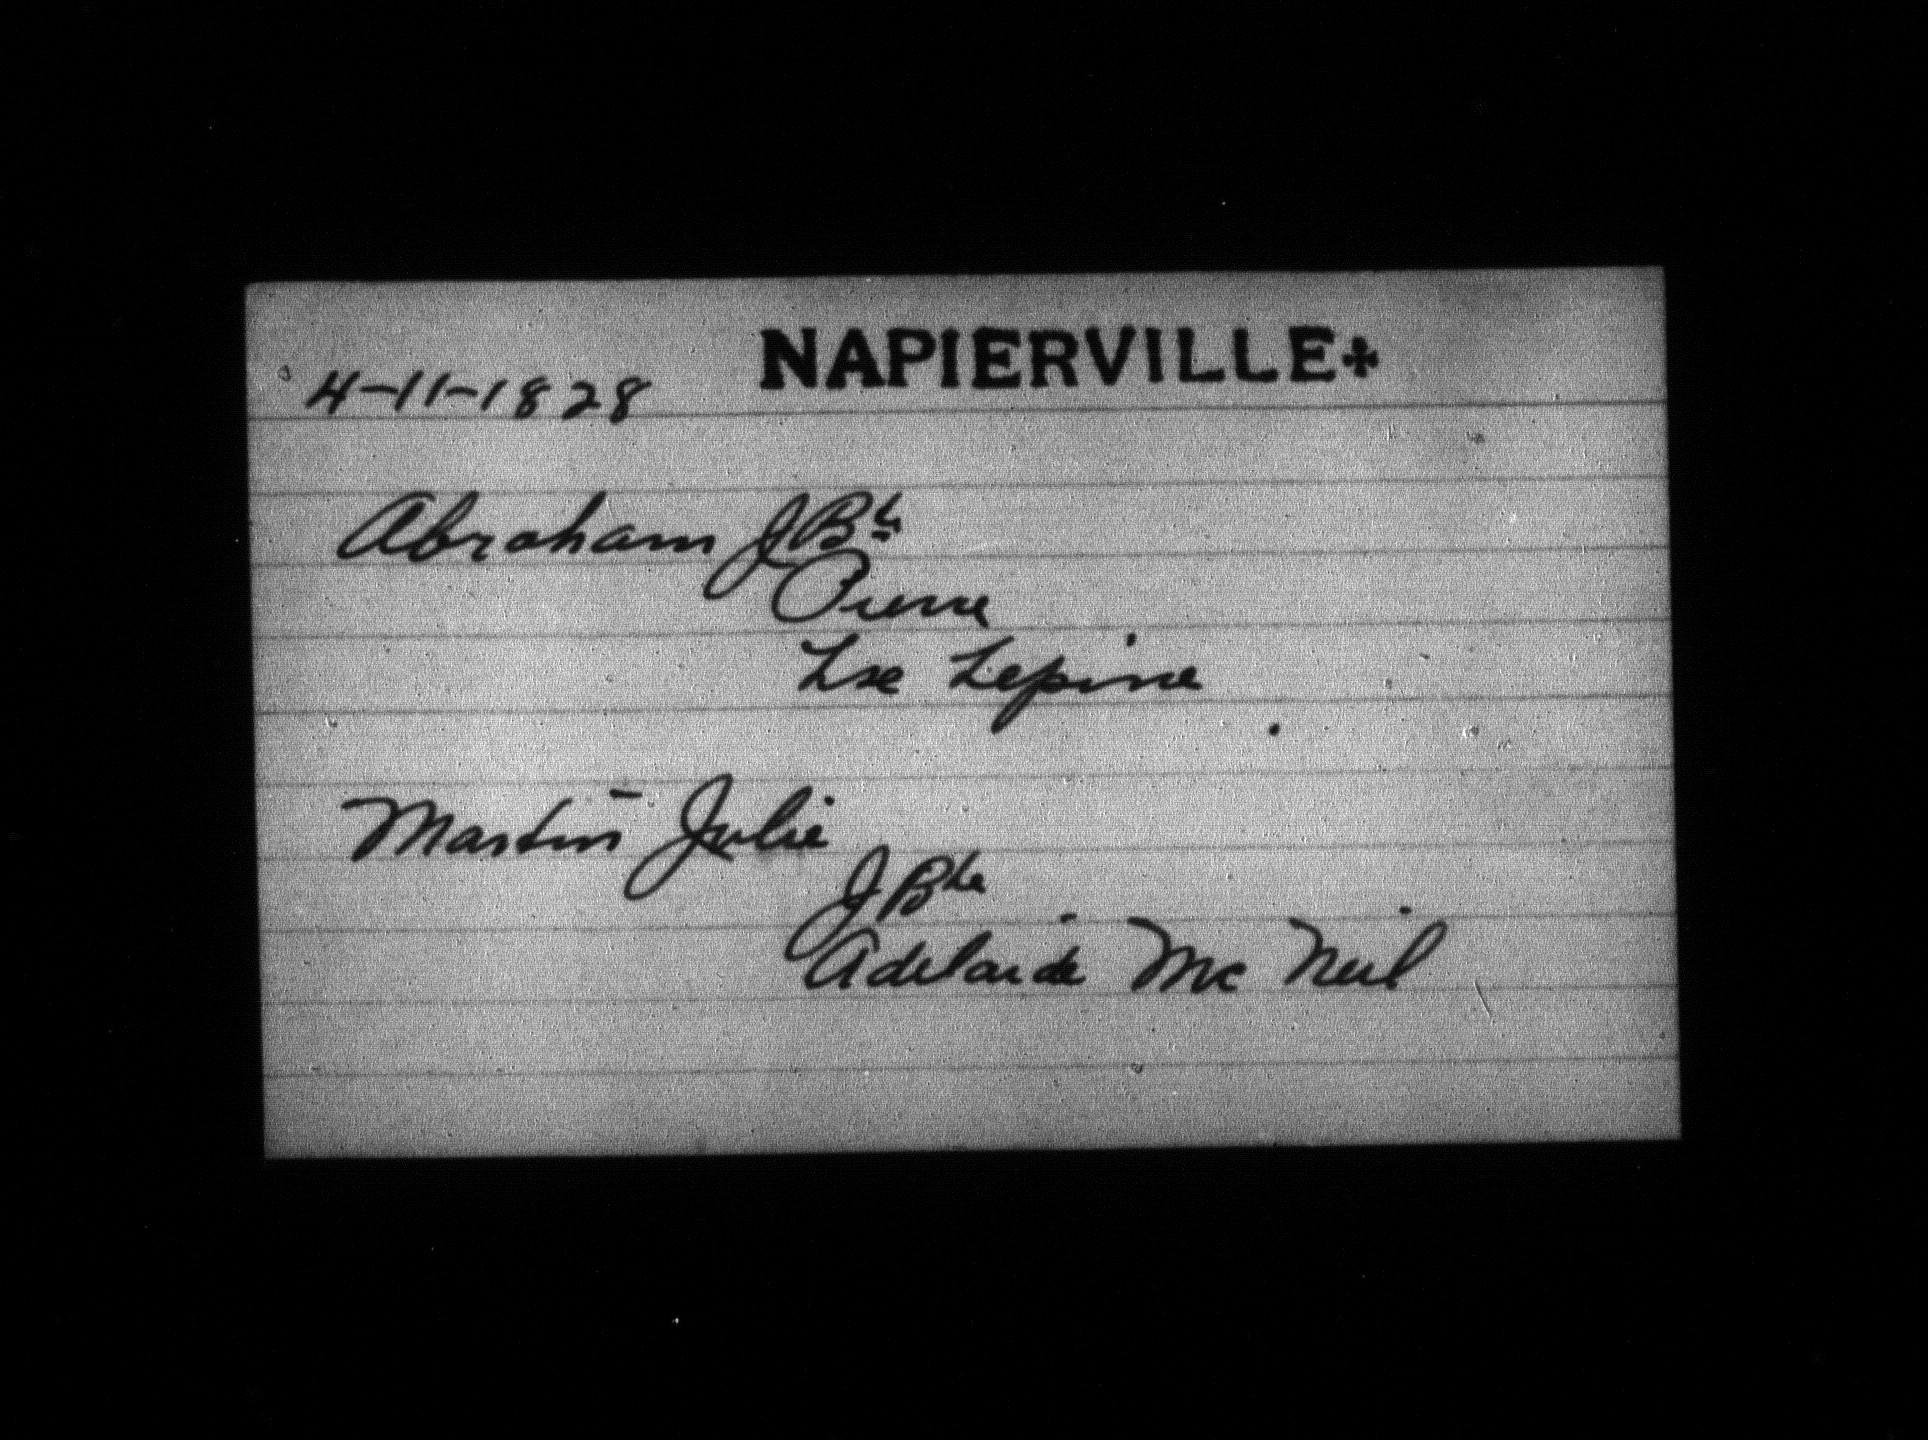 NAPIERVILLE
4-11-1828
Abraham J Bte
Pierre
Lse Lepine
Martin Julie
J Bte
Adelaide Mc Neil